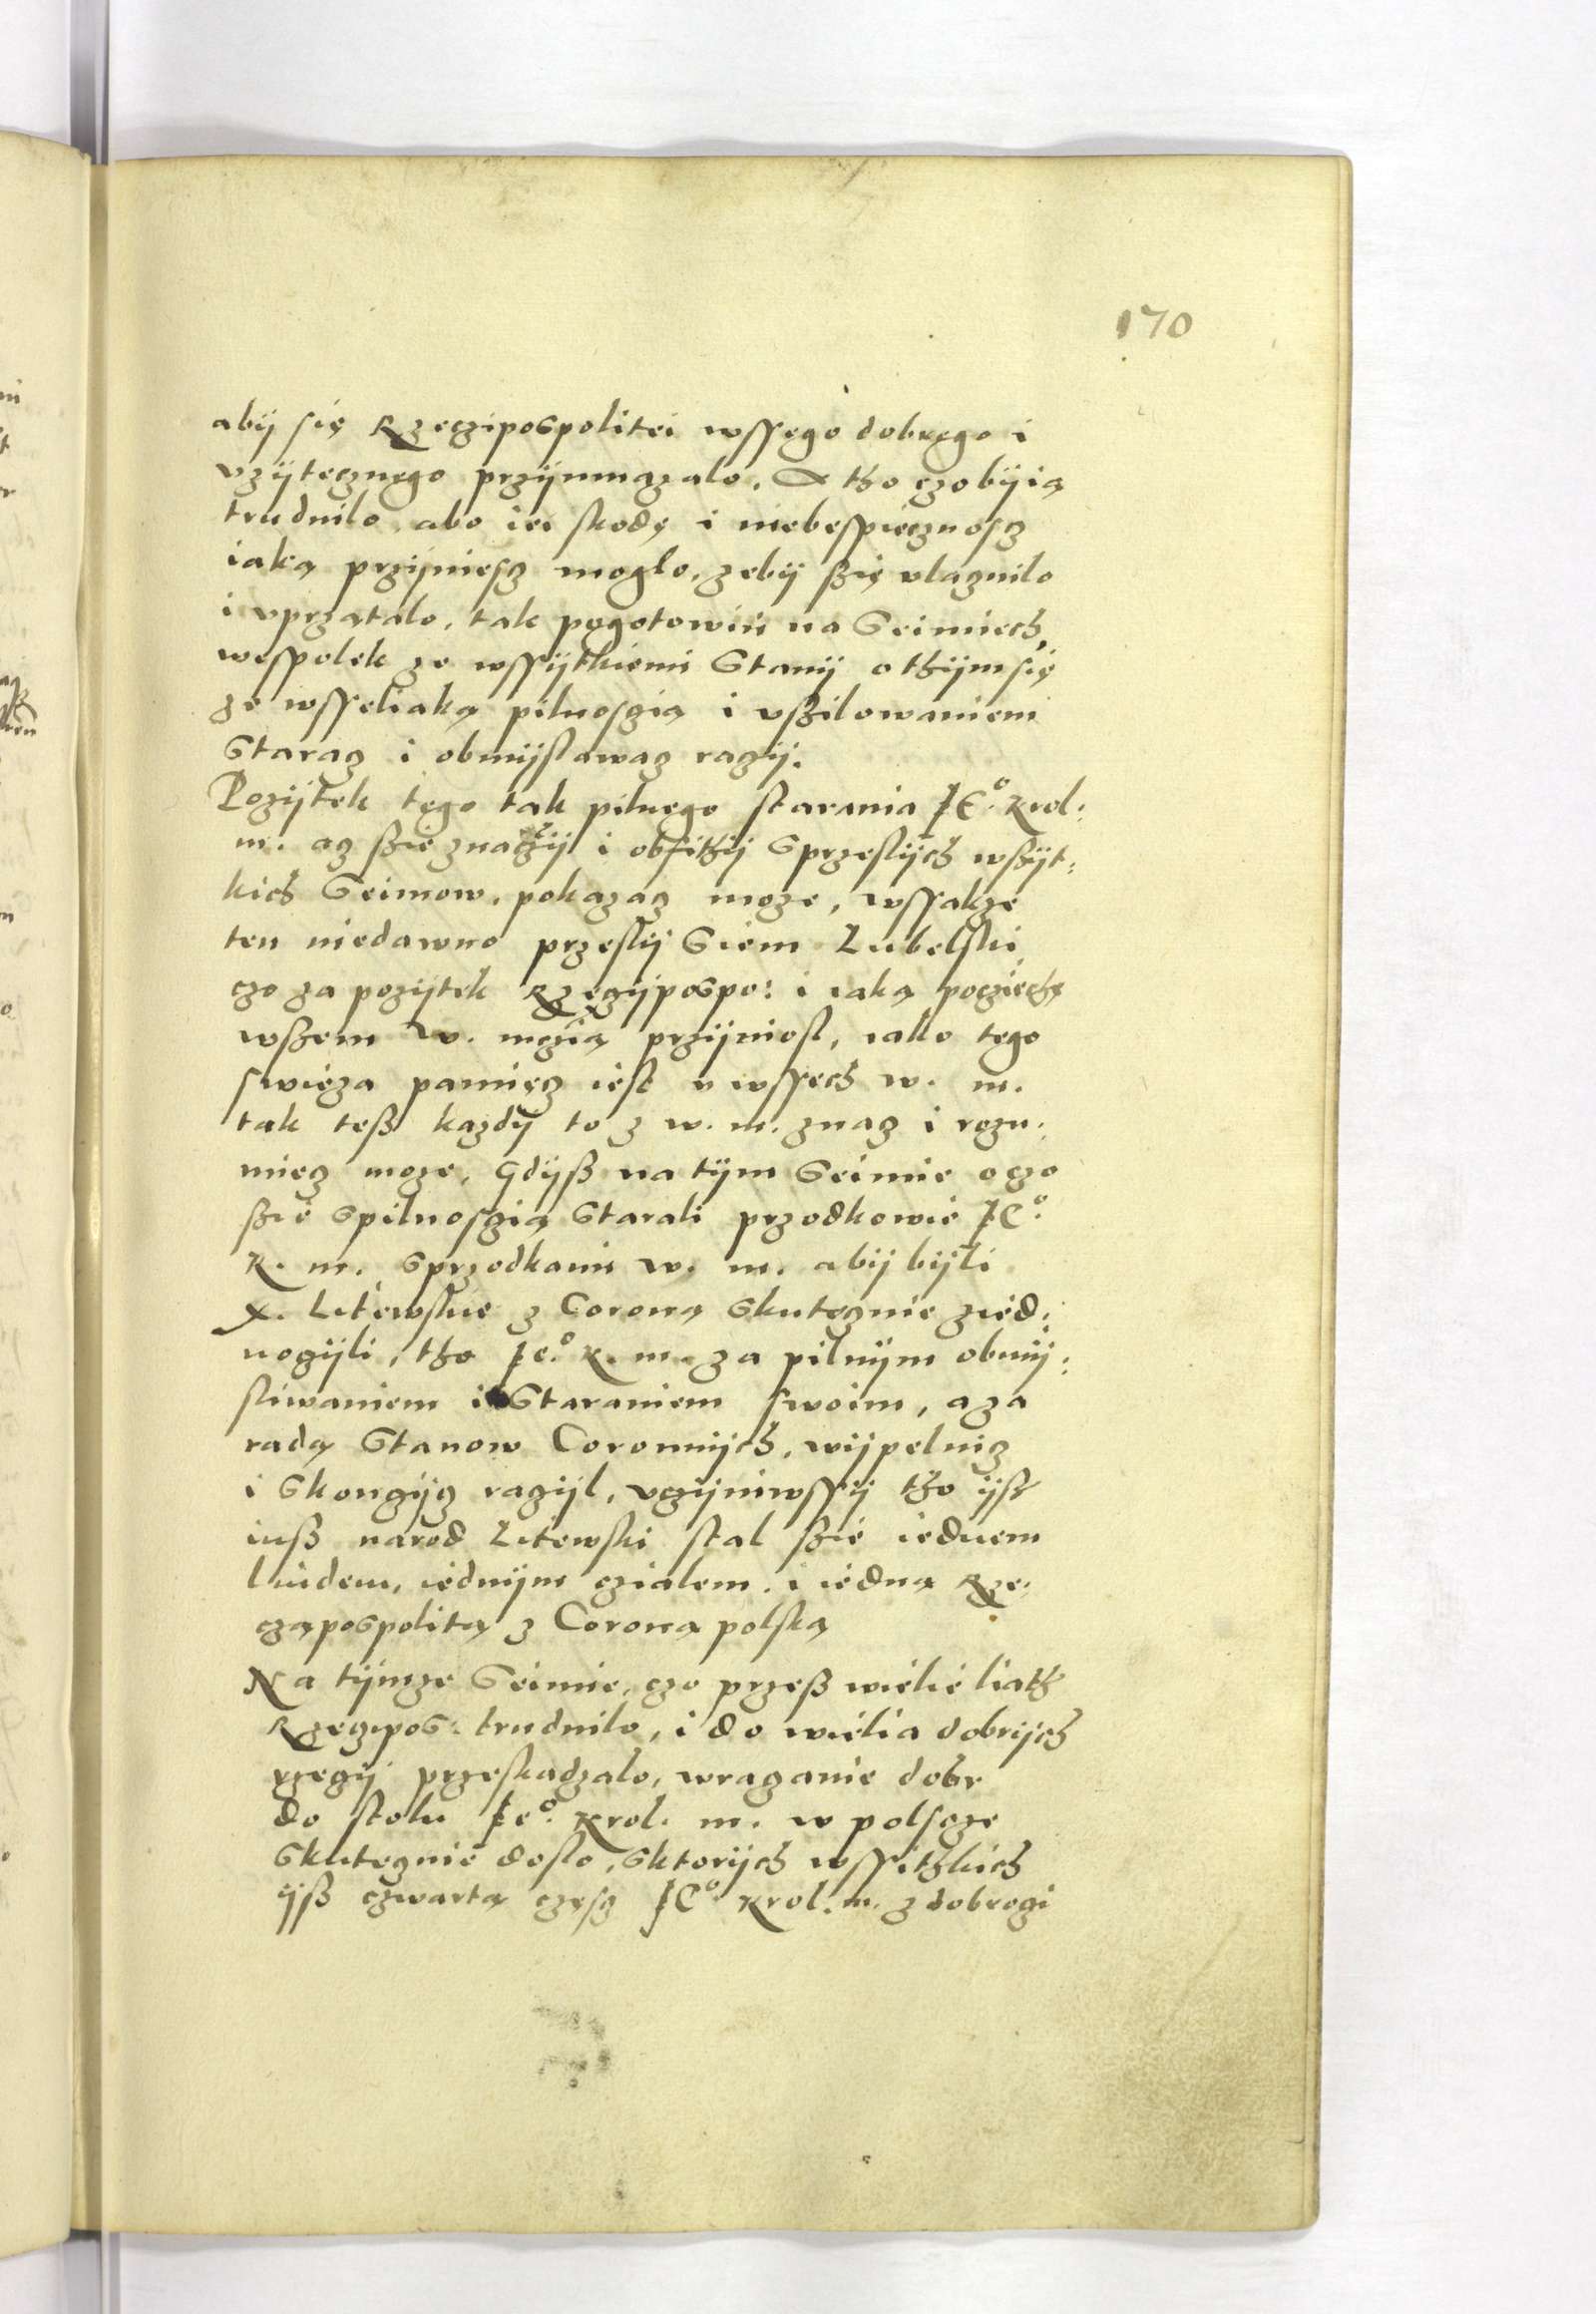 170
abÿ się Rzeczipospolitei wssego dobrego i
vzÿtecznego przÿnmazalo. A tho czobÿ ią
trudnilo, abo iei skodę i niebespiecznoscz
iaką przÿniescz moglo, zebÿ szię vlaznilo
i vprzątalo, tak pogotowiu na Seimiech,
wespolek ze wssÿtkiemi Stanÿ o thÿm się
ze wsseliaką pilnoscią i vszilowaniem
Staracz i obmÿslawacz raczÿ.
Pozÿtek tego tak pilnego starania JE.º Krol:
m. acz szie znacznÿ i obfithÿ sprzeslÿch wszÿt:
kich Seimow, pokazacz moze, wssakze
ten niedawno przeslÿ Siem Lubelski
czo za pozÿtek Rzeczÿpospo: i iaką pociechę
wszem w. mczią przÿniosl, iako tego
swieza pamięcz iest v wssech w. m.
tak tesz kazdÿ to z w. m. znacz i rozu:
miecz moze, gdÿsz na tÿm Seimie o czo
szie spilnoscią starali przodkowie JE.º
K. m. sprzodkami w. m. abÿ bÿli
X. Litewskie z Coroną skutecznie zied:
noczÿli, tho Je.º K. m. za pilnÿm obmÿ:
sliwaniem i Staraniem swoim, a za
radą Stanow Coronnÿch, wÿpelnicz
i skonczÿcz raczÿl, vczÿniwssÿ tho ÿsz
iusz narod Litewski stal szie iednem
ludem, iednÿm czialem, i iedną Rze:
czapospolitą z Coroną polską
Na tÿmze Seimie, czo przesz wielie liath
Rzeczipos: trudnilo, i do wielia dobrÿch
rzeczÿ przeskadzalo, wracanie dobr
do stolu Je.º Krol. m. w polscze
skutecznie doslo, sktorÿch wssithkich
ÿsz czwartą częscz JE.º Krol. m. z dobroci